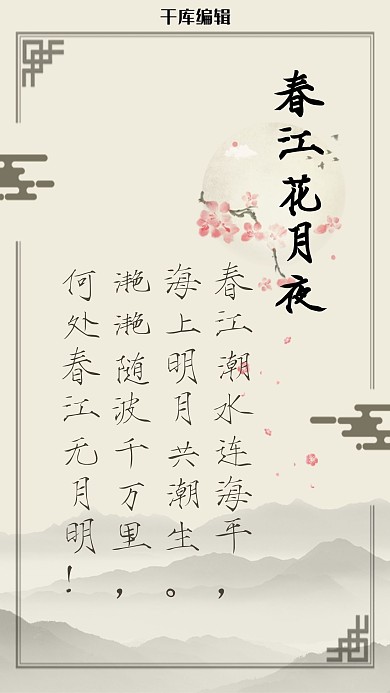 千库编辑
春江花月夜
春江潮水连海平，
海上明月共潮生。
滟滟随波千万里，
何处春江无月明！